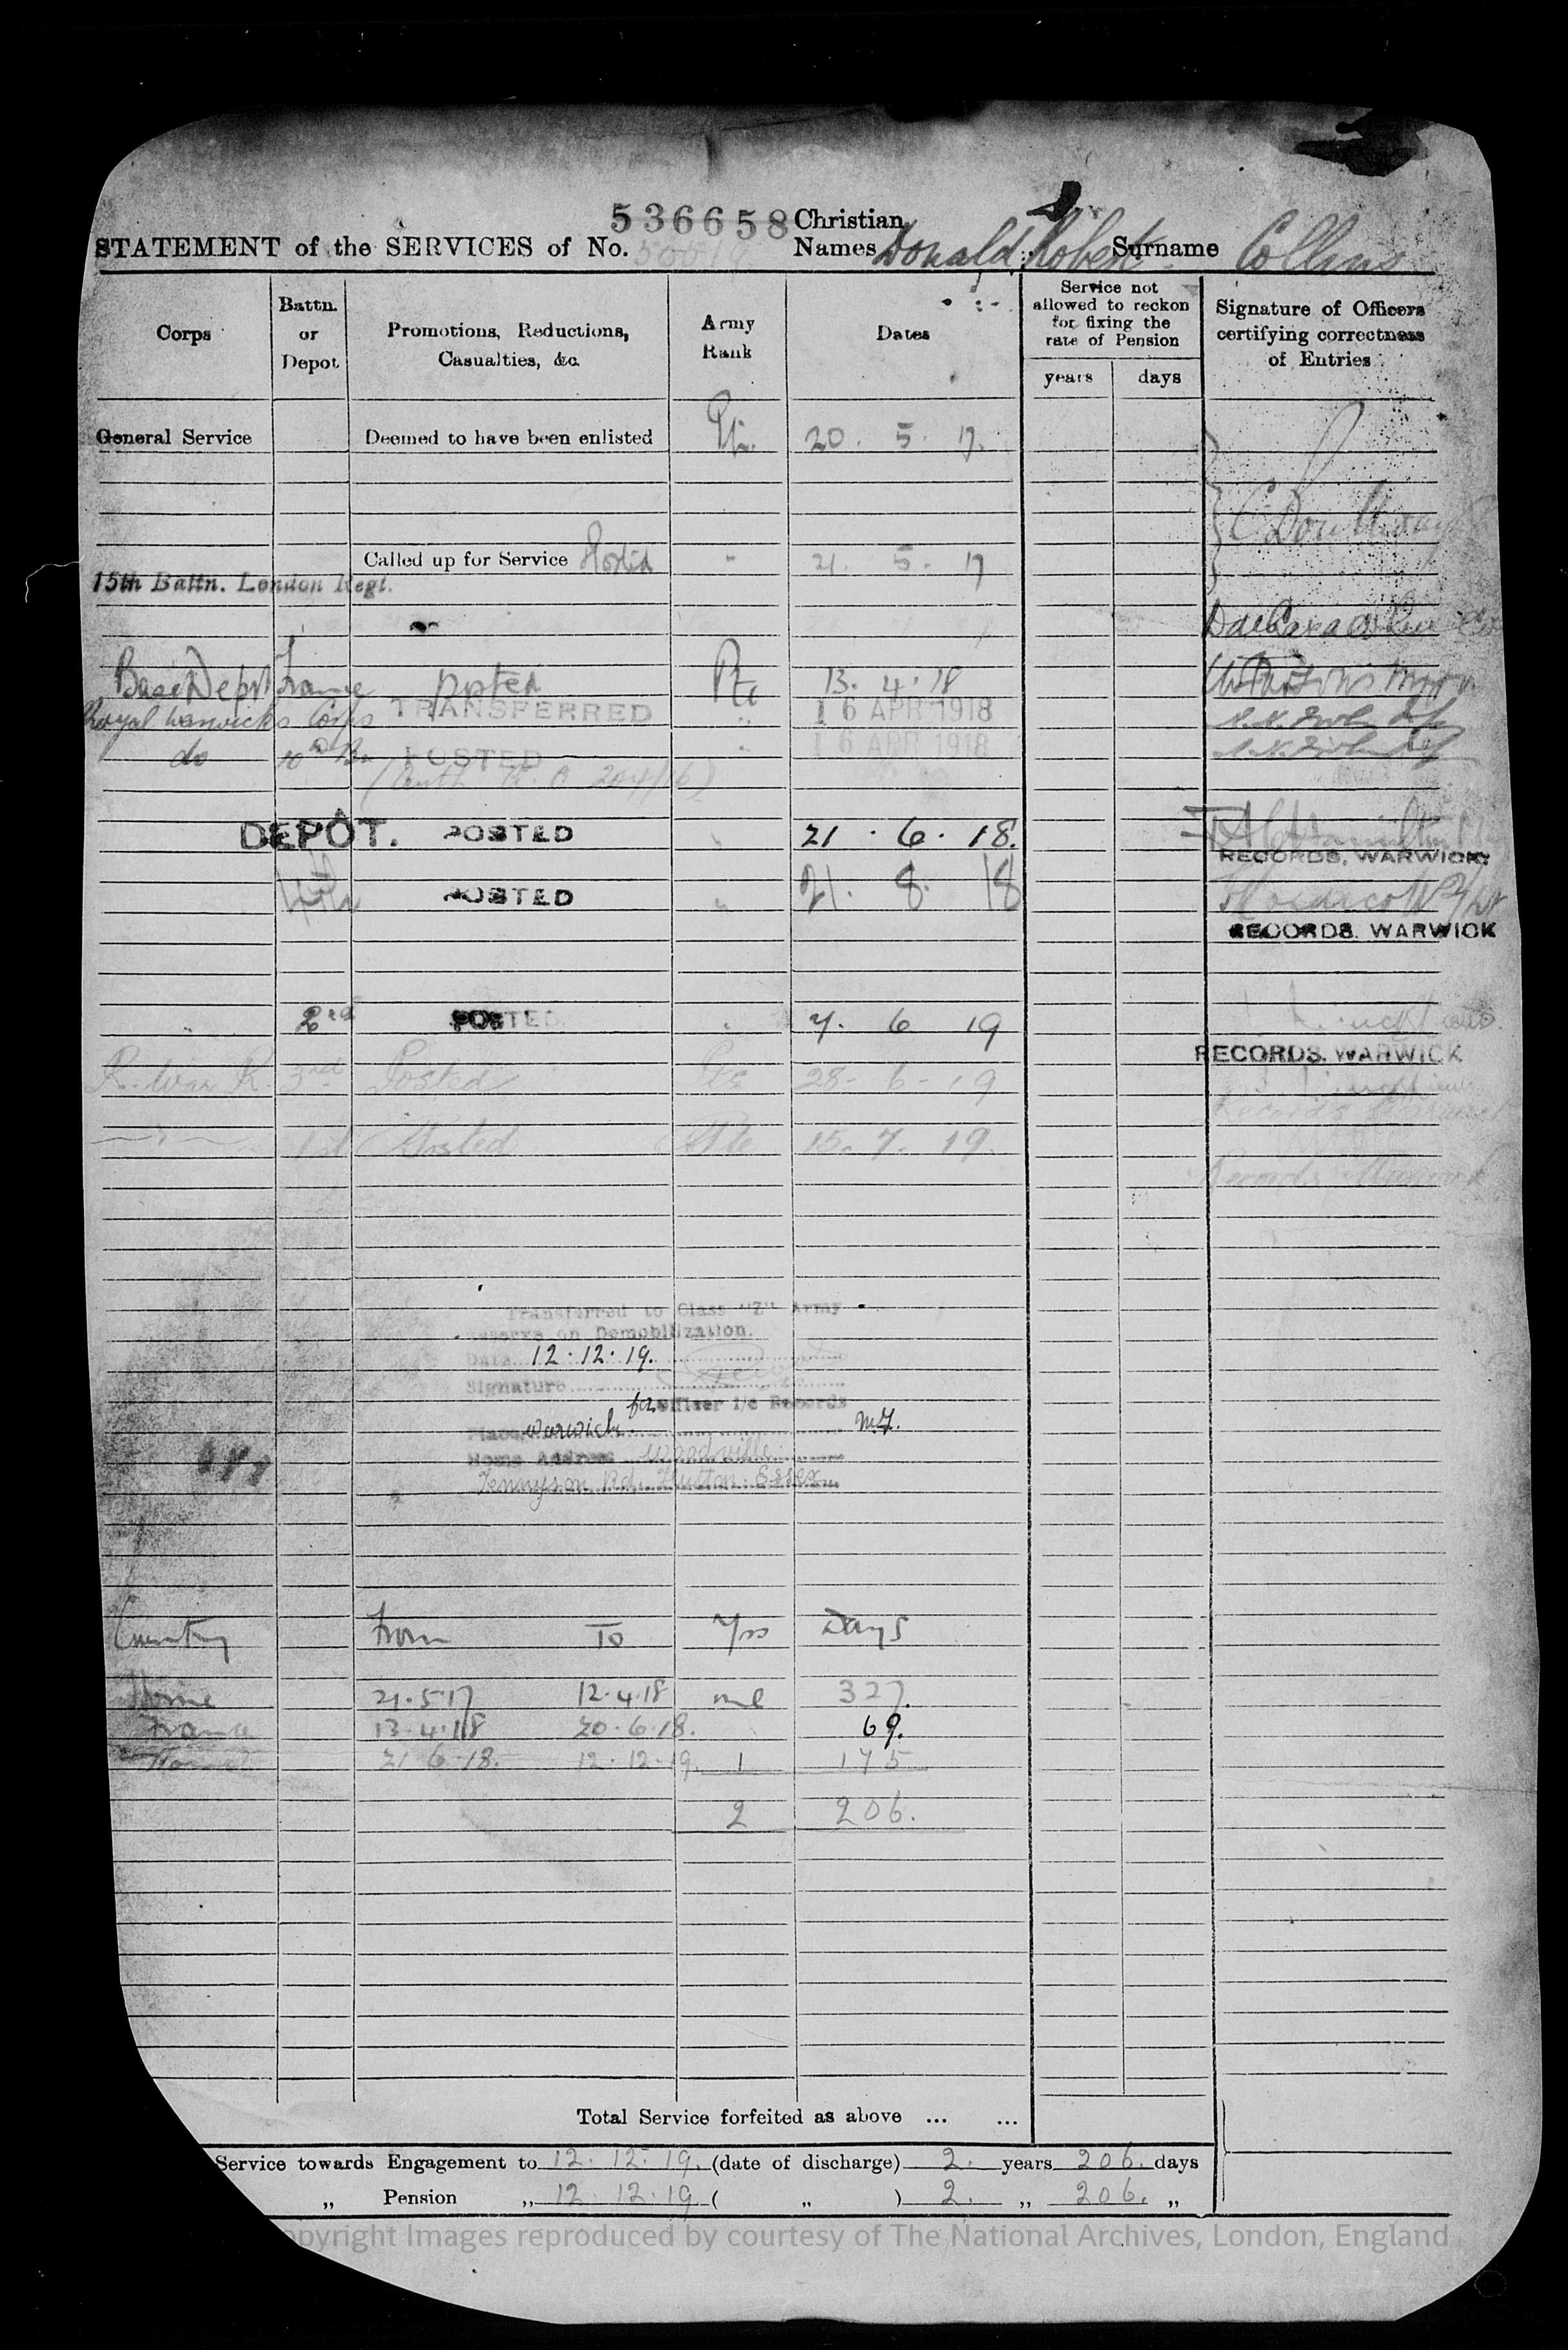 536658 Christian
STATEMENT of the SERVICES of No. Names Donald Robert Surname Collins
Corps
Battn. or Depot
Promotions, Reductions, Casualties, &c.
Army Rank
Dates
Service not allowed to reckon for fixing the rate of Pension
years days
Signature of Officers certifying correctness of Entries
General Service Deemed to have been enlisted Pte. 20. 5. 17.
Called up for Service Posted " 21. 5. 17
15th Battn. London Regt.
Base Depot France posted Pte 13. 4. 18
Royal Warwicks Corps TRANSFERRED " 16 APR 1918
do 10th Bn POSTED " 16 APR 1918
(Auth A. O 204/16)
DEPÔT. POSTED " 21 . 6. 18.
RECORDS, WARWICK.
POSTED " 21. 8. 18
RECORDS. WARWICK
" 2nd POSTED " 7. 6 19
RECORDS. WARWICK
R. War R. 3rd Posted Pte 28- 6 - 19
Records Warwick
1st Posted Pte 15. 7. 19.
Records Warwick
Transferred to Class "Z" Army
Reserve on Demobilization.
Date 12.12.19.
Signature
for Officer i/c Records
Place Warwick
Home Address Woodville
Tennyson Rd. Hutton. Essex
Country From To Yrs Days
Home 21.5.17 12.4.18 nil 327.
France 13.4.18 20.6.18. 69.
Home 21 6.18. 12.12.19. 1 175
2 206.
Total Service forfeited as above ... ...
Service towards Engagement to 12. 12. 19. (date of discharge) 2. years 206. days
„ Pension „ 12.12.19 ( „ ) 2. „ 206. „
opyright Images reproduced by courtesy of The National Archives, London, England